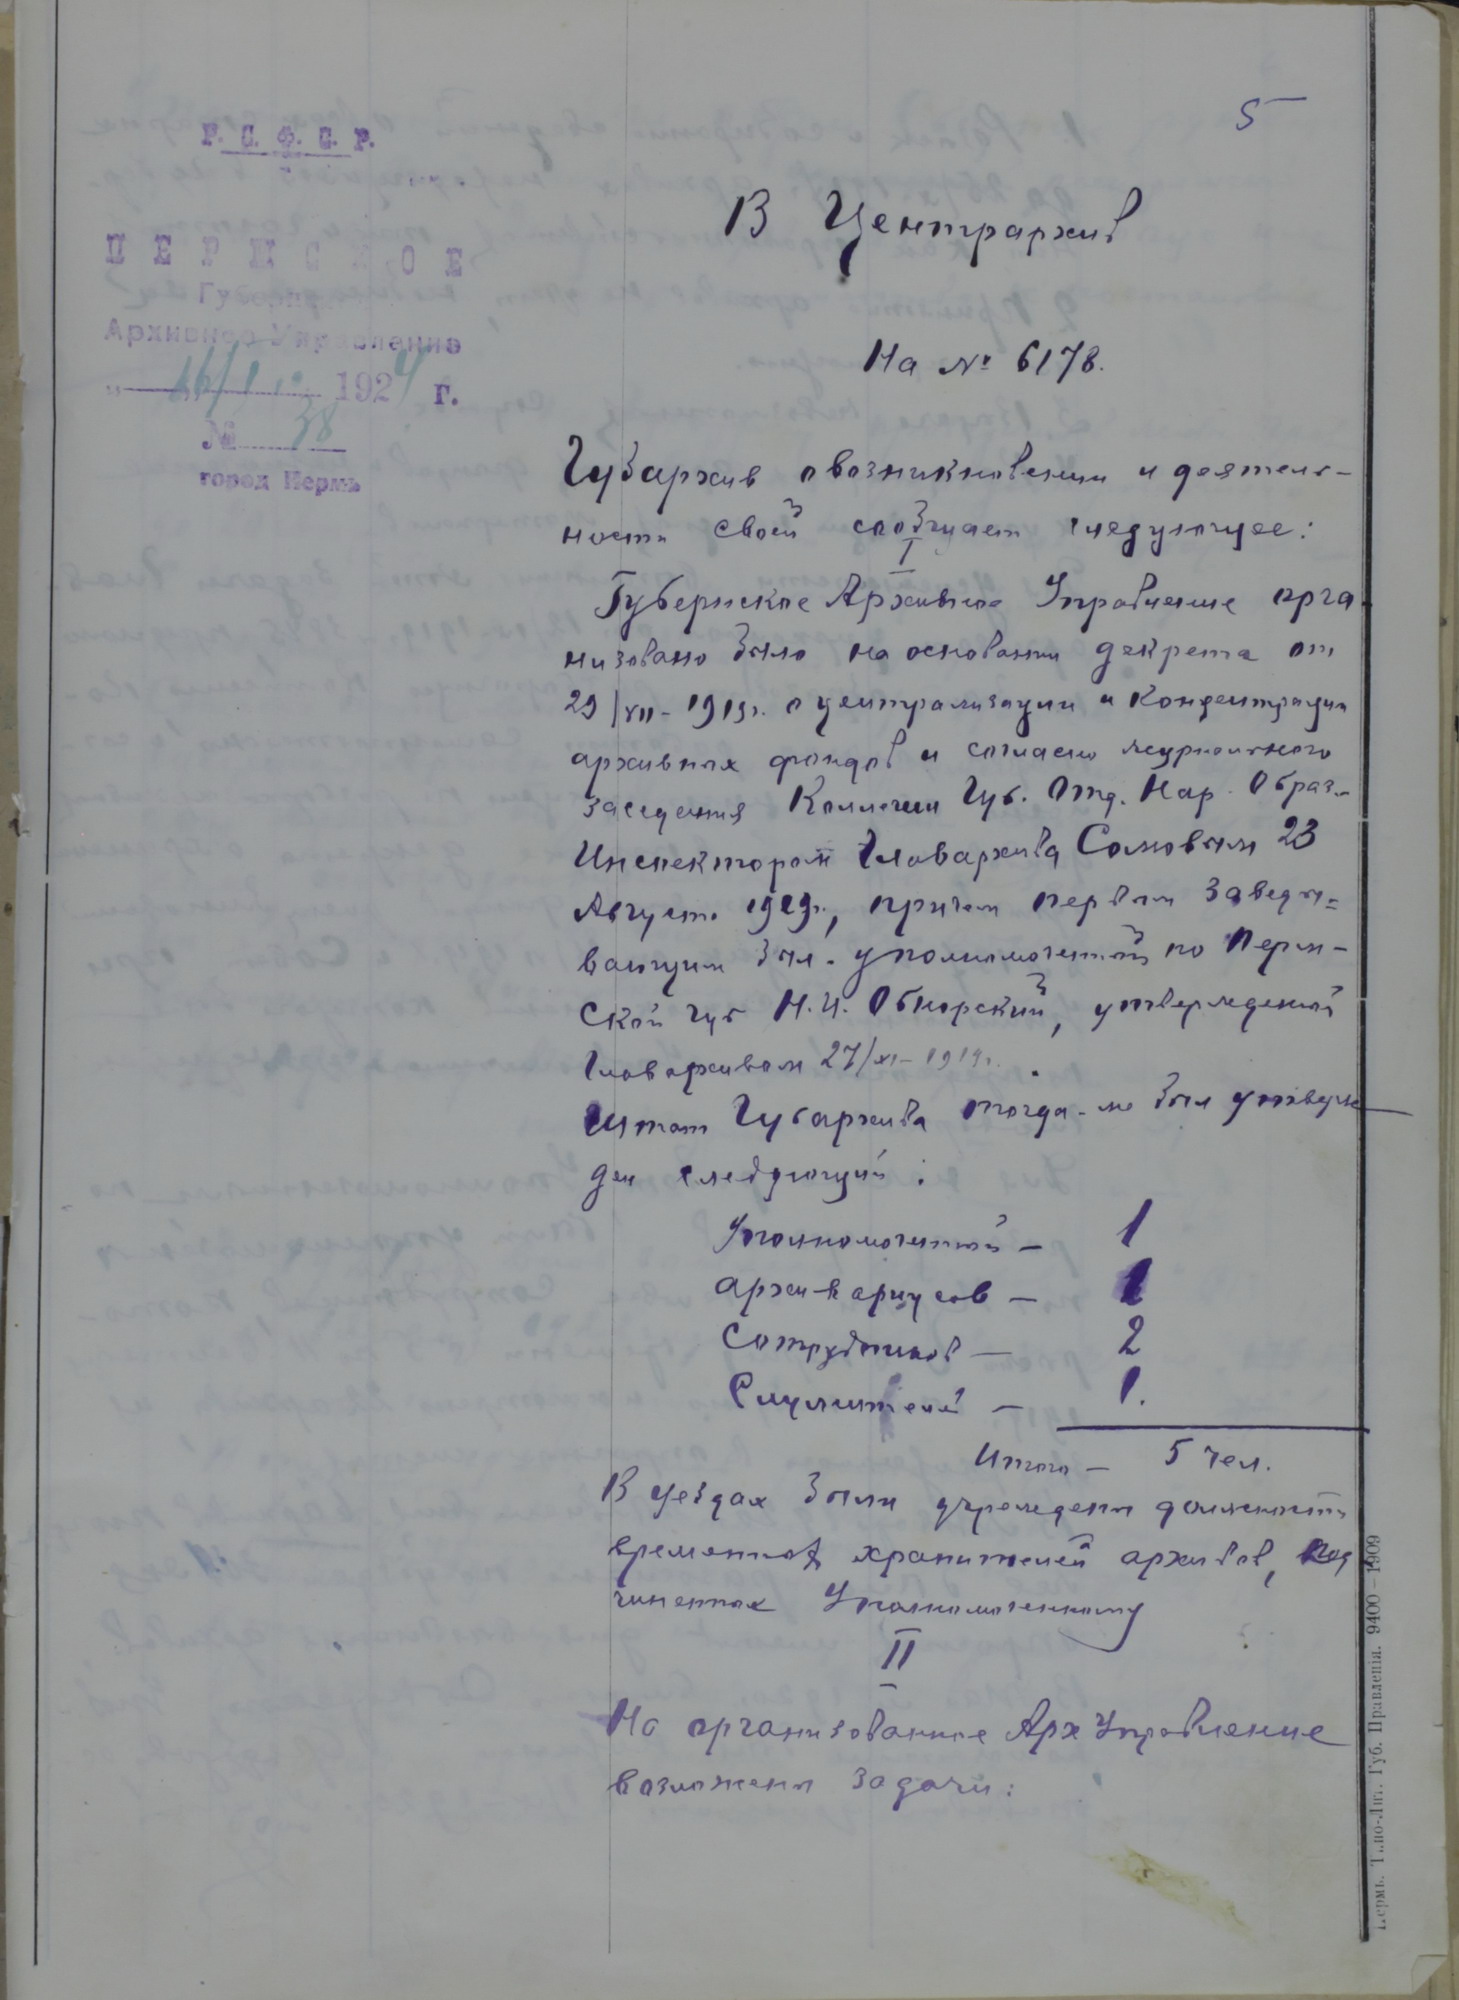 5
Р. С. Ф. С. Р.
ПЕРМСКОЕ
Губернское
Архивное Управление
„ 16/I 1924 г.
№ 38
город Пермь
В Центрархив
На № 6178.
Губархив о возникновении и деятель-
ности своей сообщает следующее:
I
Губернское Архивное Управление орга-
низовано было на основании декрета от
29/VII-1919г. о централизации и концентрации
архивных фондов и согласно журнального
заседания Коллегии Губ. Отд. Нар. Образ.
Инспектором Главархива Соловым 23
Августа 1919г., причем первым заведы=
вающим был уполномоченный по Перм-
ской губ Н.И. Обнорский, утвержденный
Главархивом 27/XI-1919г.
Штат Губархива тогда-же был утверж-
ден следующий:
Уполномоченный — 1
архивариусов — 1
Сотрудников — 2
Служителей — 1.
Итого — 5 чел.
В уездах были учреждены должности
временных хранителей архивов, под
чиненных Уполномоченному
II
На организованное АрхУправление
возложены задачи:
Пермь. Типо-Лит. Губ. Правления. 9400–1909